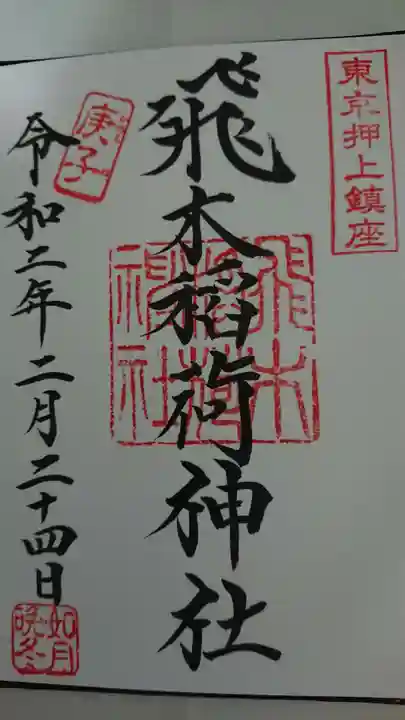 東京押上鎮座
飛木稲荷神社
飛木稲荷神社
庚子
令和二年二月二十四日
如月
晩冬